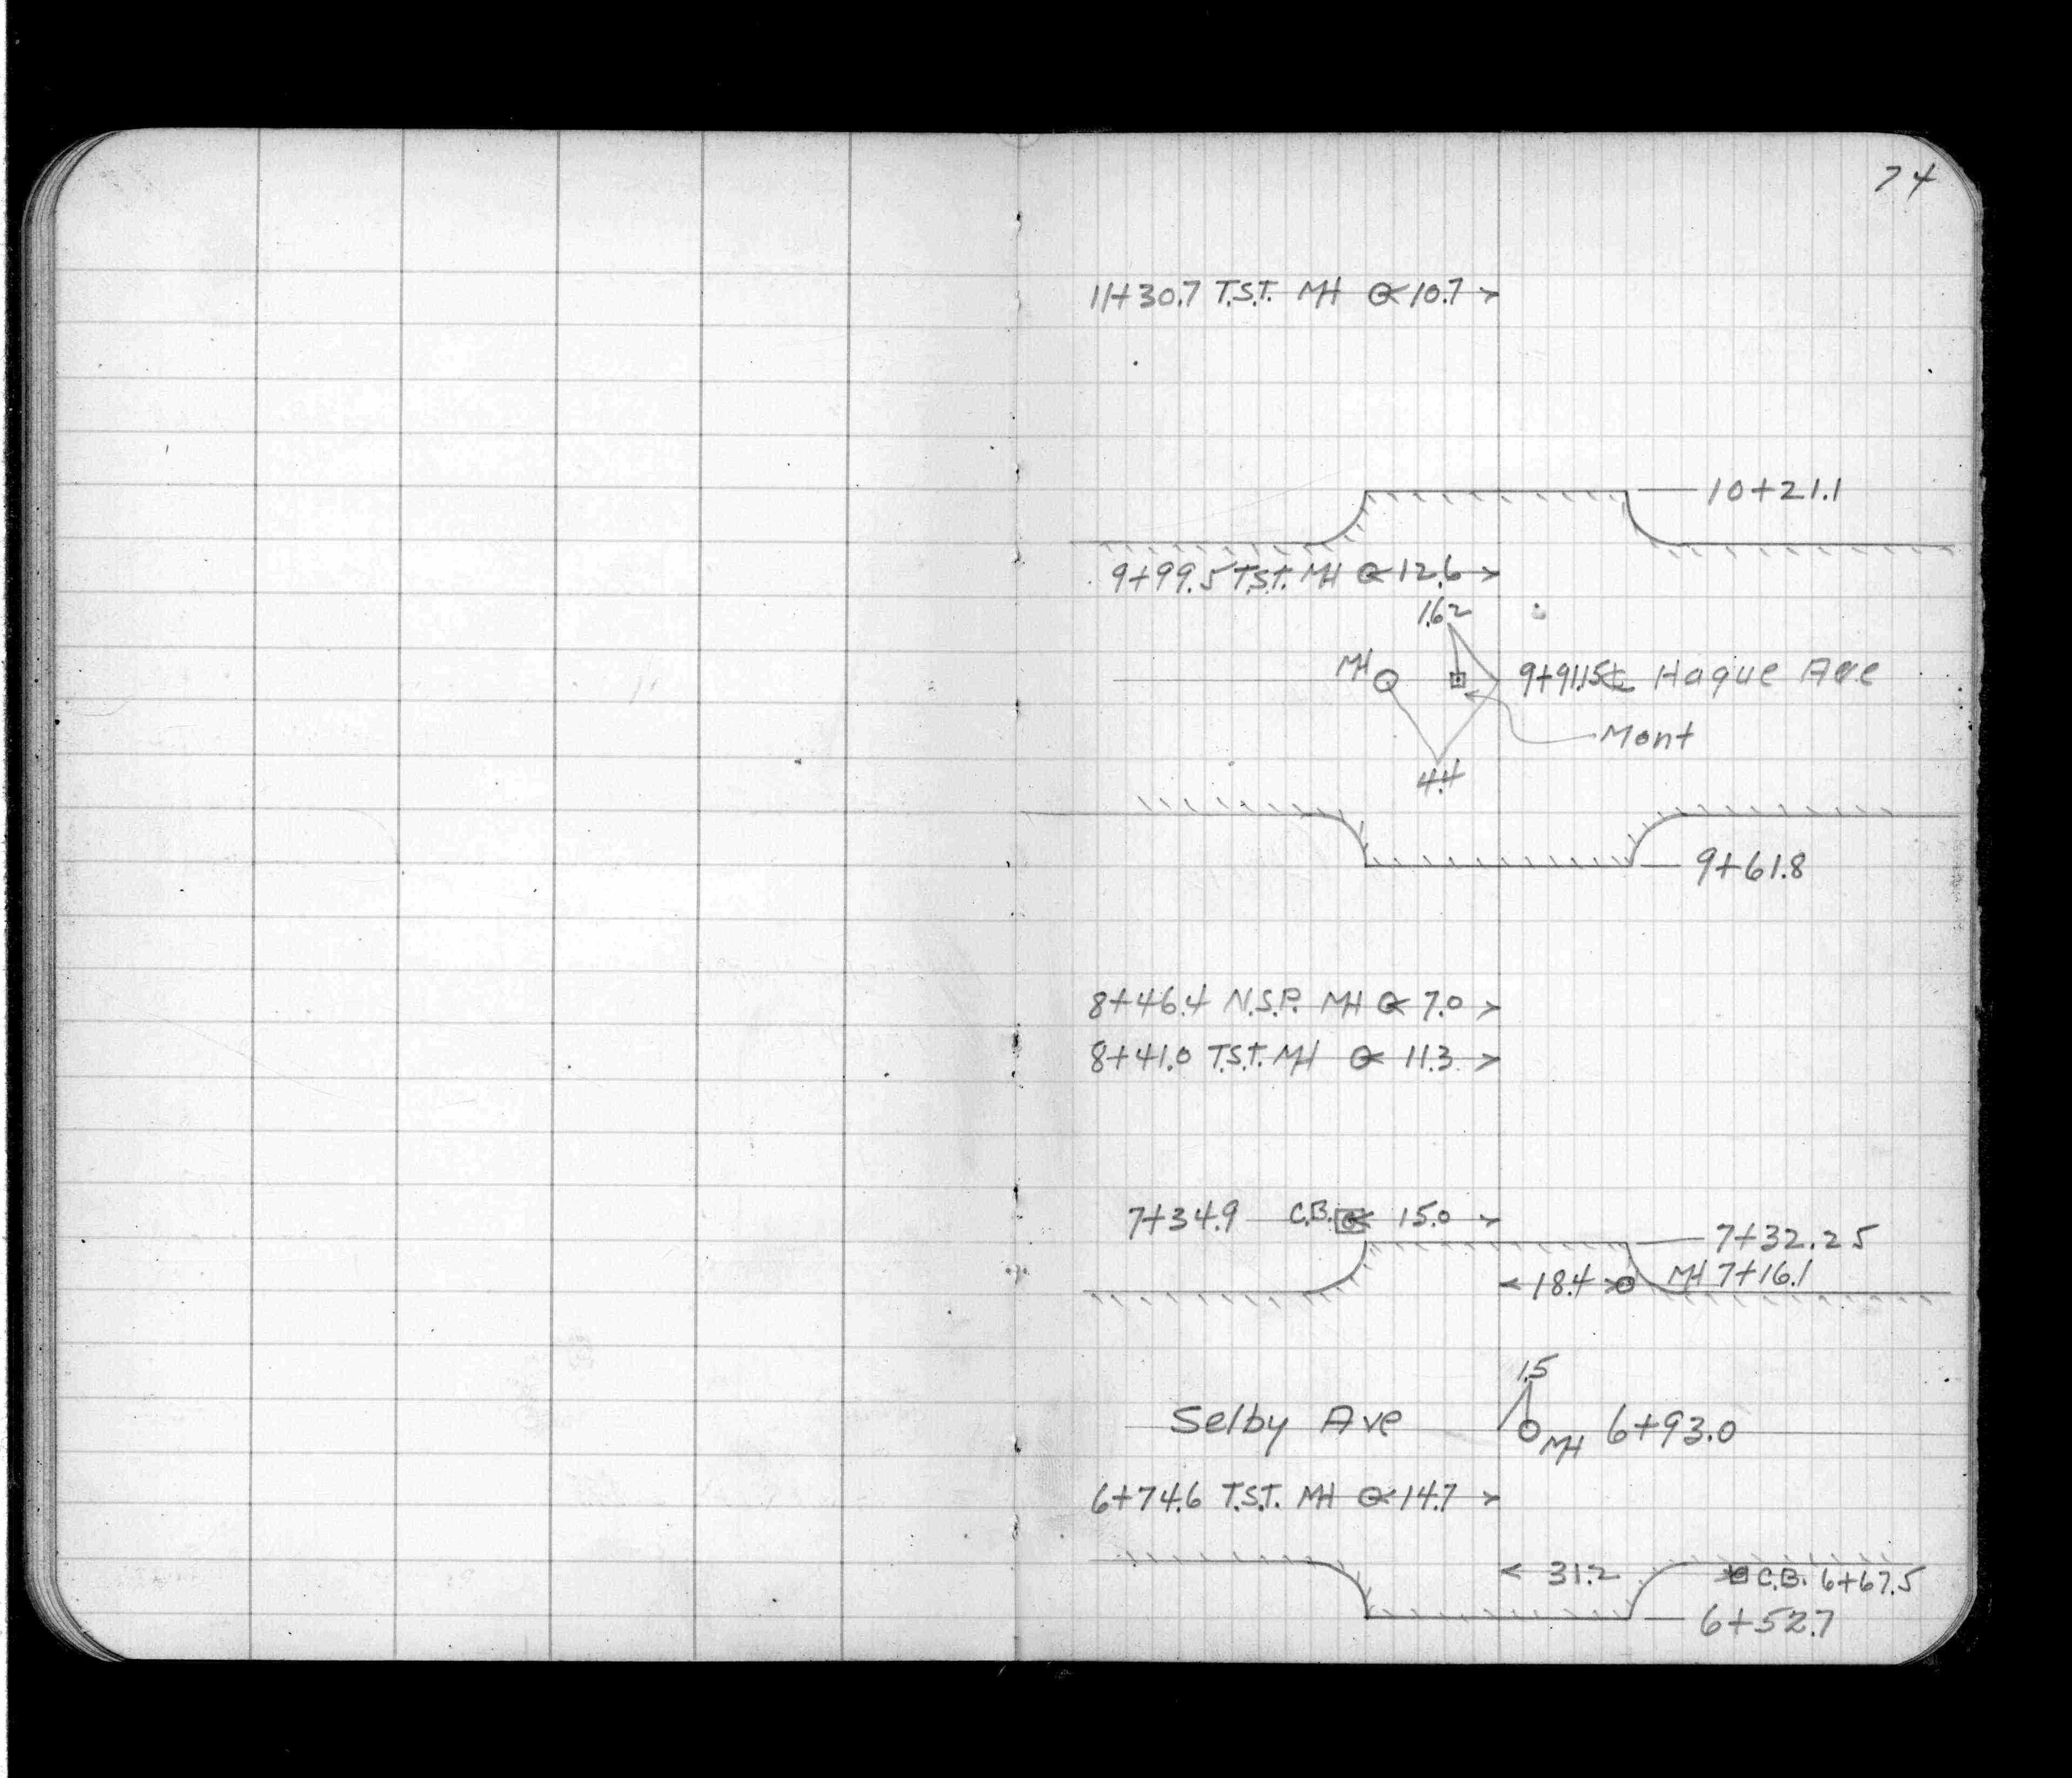 74
11+30.7 T.S.T. MH 10.7
10+21.1
9+99.5 T.S.T. MH 12.6
1.62
MH 9+91.15 ℄ Hague Ave
Mont
4.4
9+61.8
8+46.4 N.S.P. MH 7.0
8+41.0 T.S.T. MH 11.3
7+34.9 C.B. 15.0
7+32.25
18.4 MH 7+16.1
1.5
Selby Ave MH 6+93.0
6+74.6 T.S.T. MH 14.7
31.2 C.B. 6+67.5
6+52.7